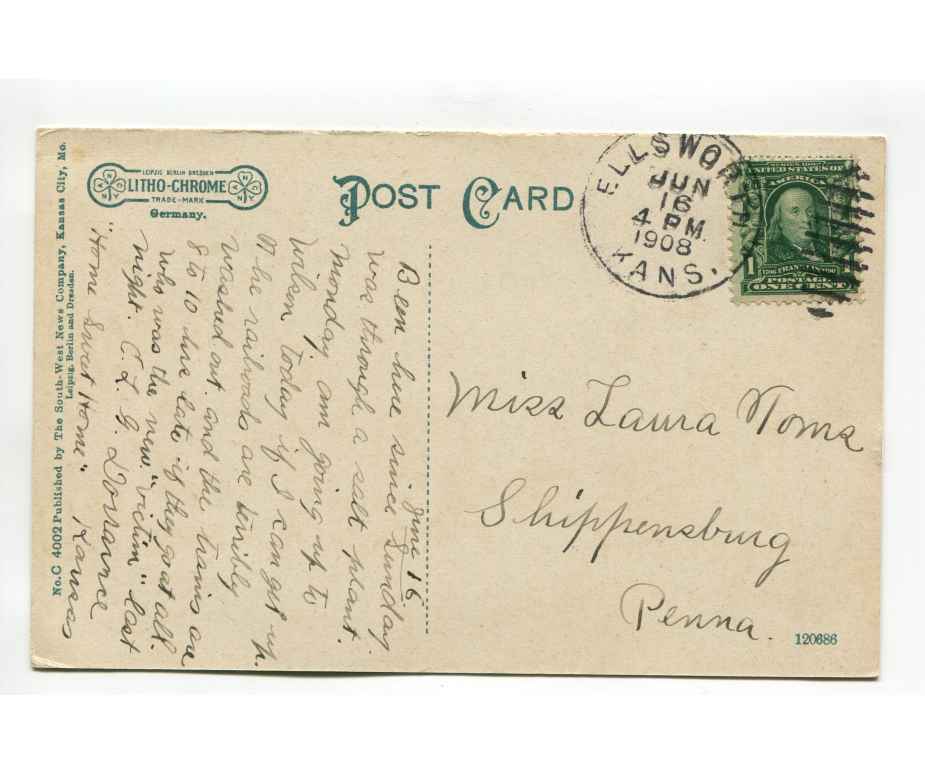 No. C 4002 Published by The South-West News Company, Kansas City, Mo.
Leipzig, Berlin and Dresden.
LEIPZIG BERLIN DRESDEN
LITHO-CHROME
TRADE-MARK
Germany.
POST CARD
ELLSWORTH
JUN
16
4 PM
1908
KANS.
UNITED STATES OF
AMERICA
1
FRANKLIN
POSTAGE
ONE CENT
June 16
Been here since Sunday.
was through a salt plant.
Monday am going up to
today if I can get up.
The railroads are terribly
washed out. and the trains are
8 to 10 hrs late if they go at all.
Who was the new "victim" last
night. C. L. G. Dorrance
"Home Sweet Home" Kansas
Miss Laura Toms
Shippensburg
Penna.
120686